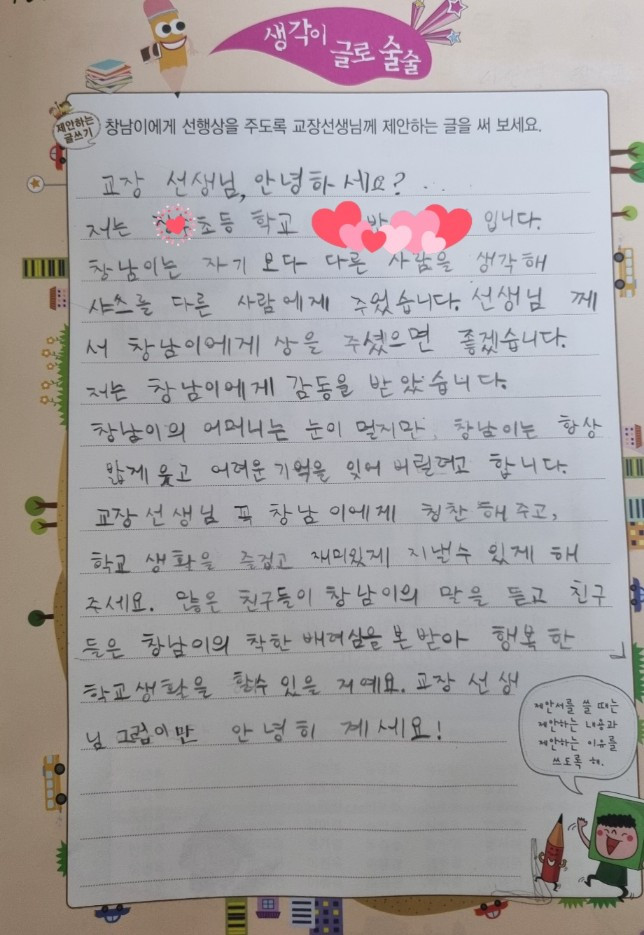 생각이
글로 술술
제안하는
글쓰기
창남이에게 선행상을 주도록 교장선생님께 제안하는 글을 써 보세요.
교장 선생님, 안녕하세요?
저는 초등 학교 반 입니다.
창남이는 자기 보다 다른 사람을 생각해
샤쓰를 다른 사람에게 주웠습니다. 선생님 께
서 창남이에게 상을 주셨으면 좋겠습니다.
저는 창남이에게 감동을 받았습니다.
창남이의 어머니는 눈이 멀지만, 창남이는 항상
밟게 웃고 어려운 기억을 잊어 버릴려고 합니다.
교장선생님 꼭 창남이에게 칭찬해주고,
학교 생활을 즐겁고 재미있게 지낼수 있게 해
주세요. 많은 친구들이 창남이의 말을 듣고 친구
들은 창남이의 착한 배려심을 본받아 행복한
학교생활을 할수 있을 거예요. 교장 선생
님 그럼이만 안녕히 계세요!
제안서를 쓸 때는
제안하는 내용과
제안하는 이유를
쓰도록 해.